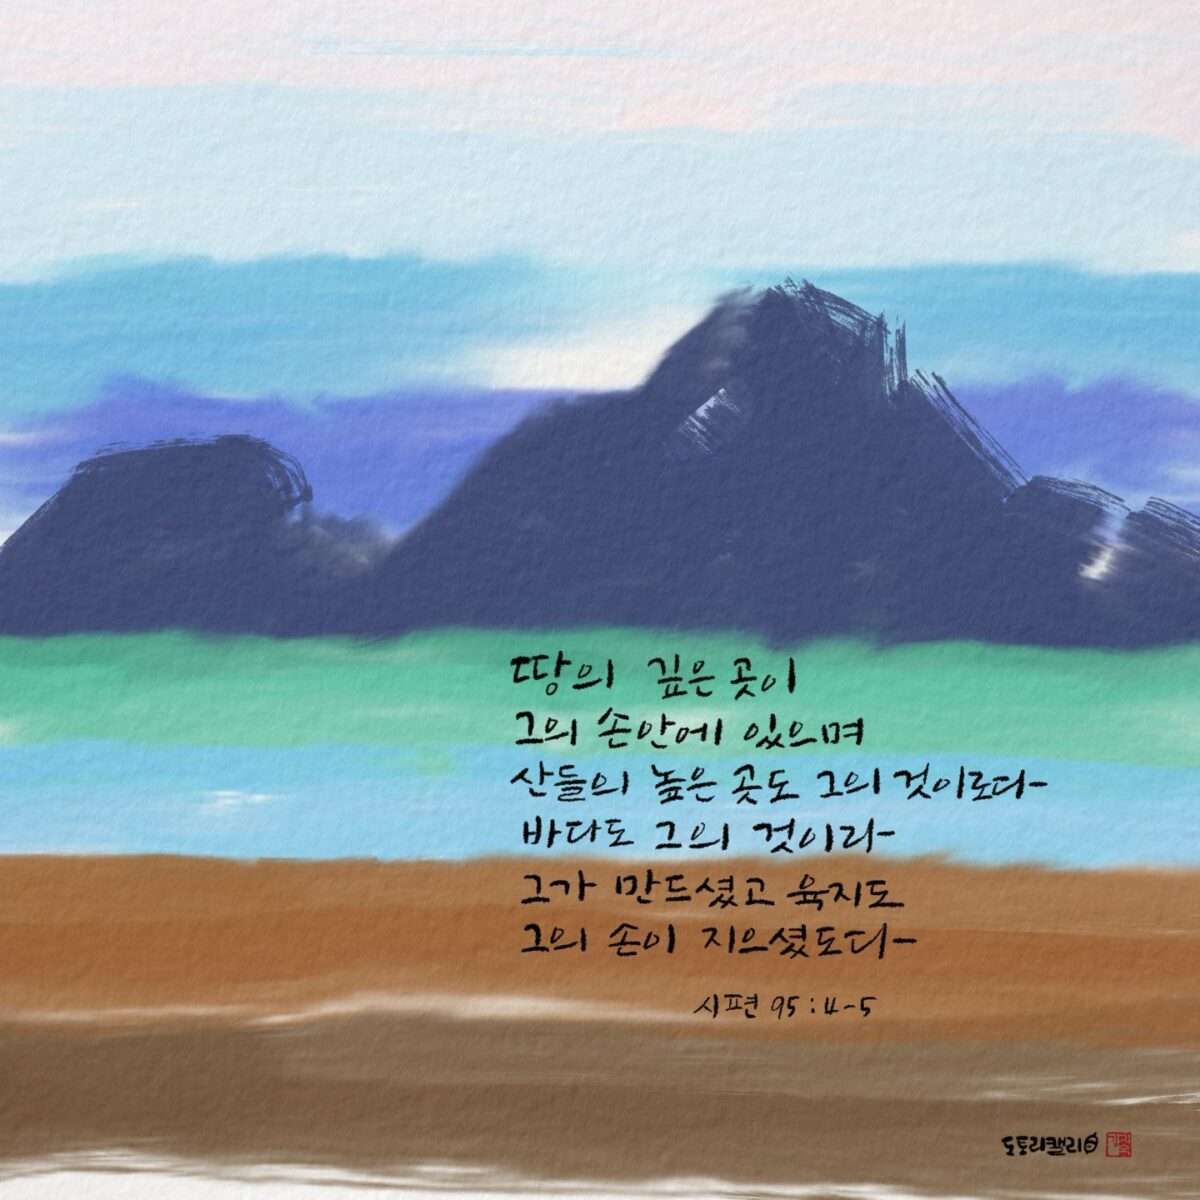 땅의 깊은 곳이
그의 손안에 있으며
산들의 높은 곳도 그의 것이로다
바다도 그의 것이라
그가 만드셨고 육지도
그의 손이 지으셨도다
시편 95:4-5
도토리캘리